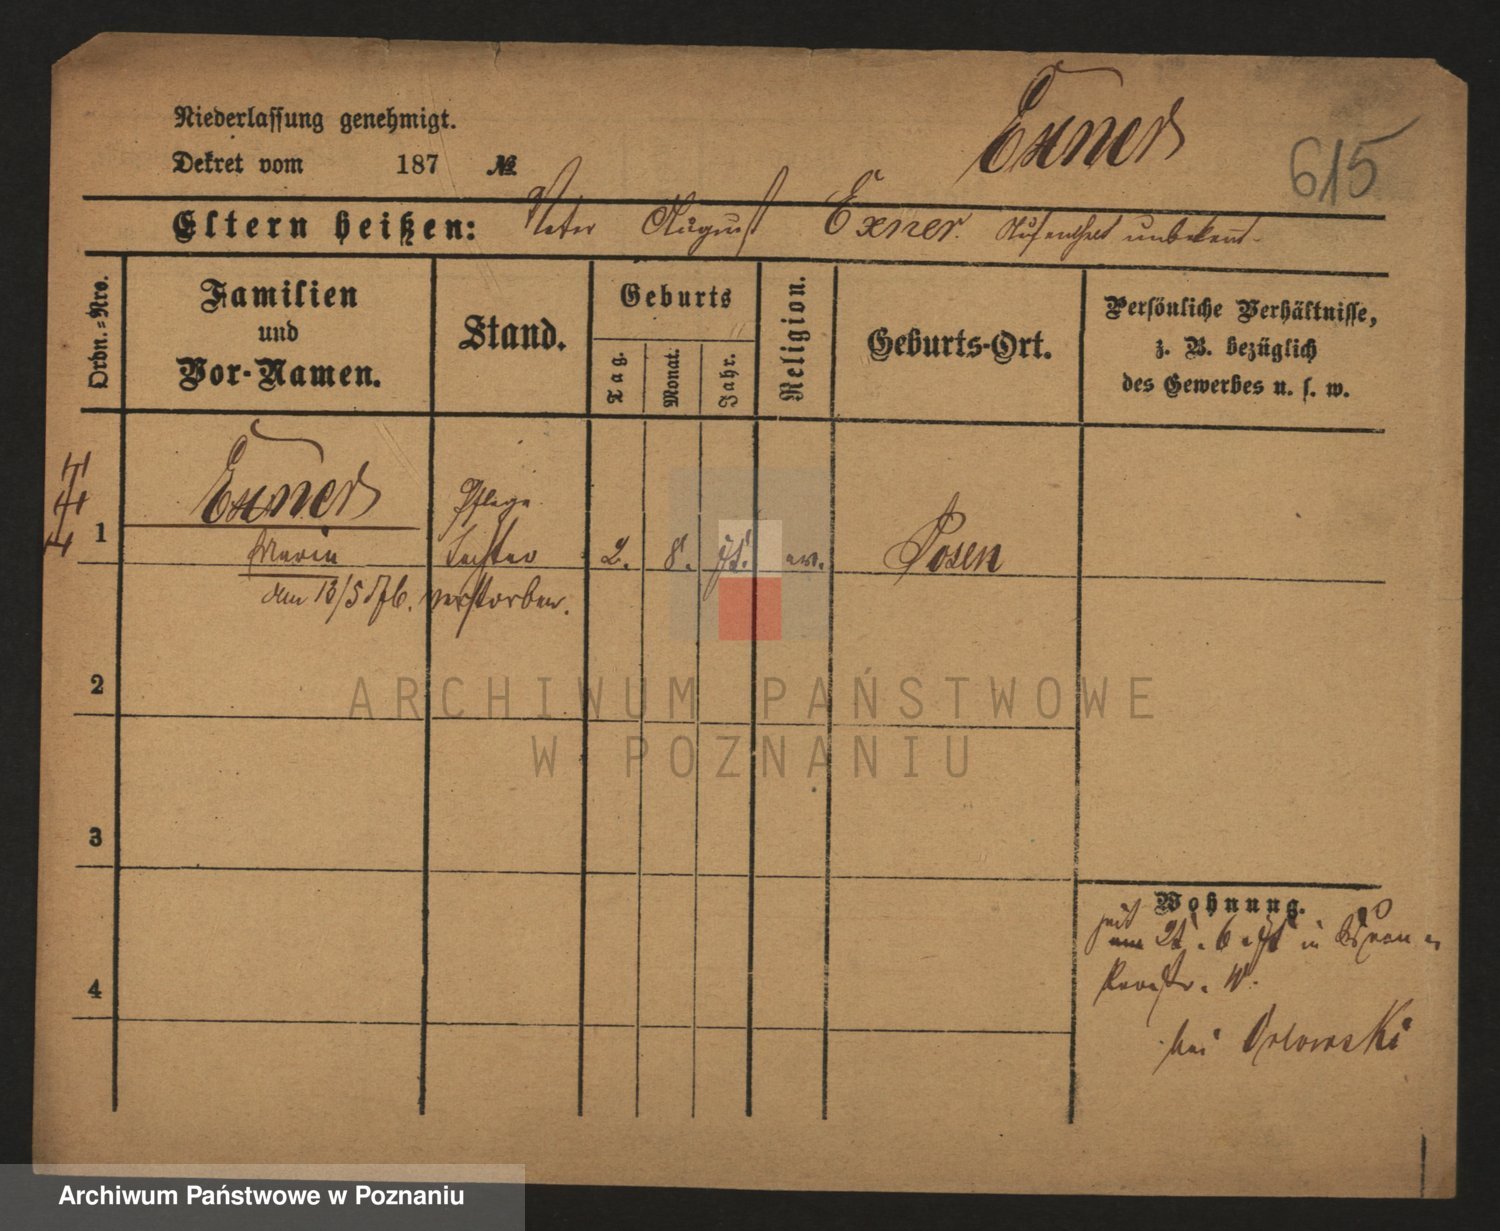 Niederlassung genehmigt.
Exner
615
Dekret vom 187 №
Eltern heißen: Vater August Exner. Aufenthalt unbekannt.
Ordn.=Nro.
Familien
und
Vor-Namen.
Stand.
Geburts
Tag.
Monat.
Jahr.
Religion.
Geburts-Ort.
Persönliche Verhältnisse,
z. B. bezüglich
des Gewerbes u. s. w.
1
Exner
Pflege
Maria
Tochter
2. 8. ev.
Posen
den 13/5 verstorben.
2
ARCHIWUM PAŃSTWOWE
W POZNANIU
3
Wohnung.
seit in
4
bei Orlowski
Archiwum Państwowe w Poznaniu